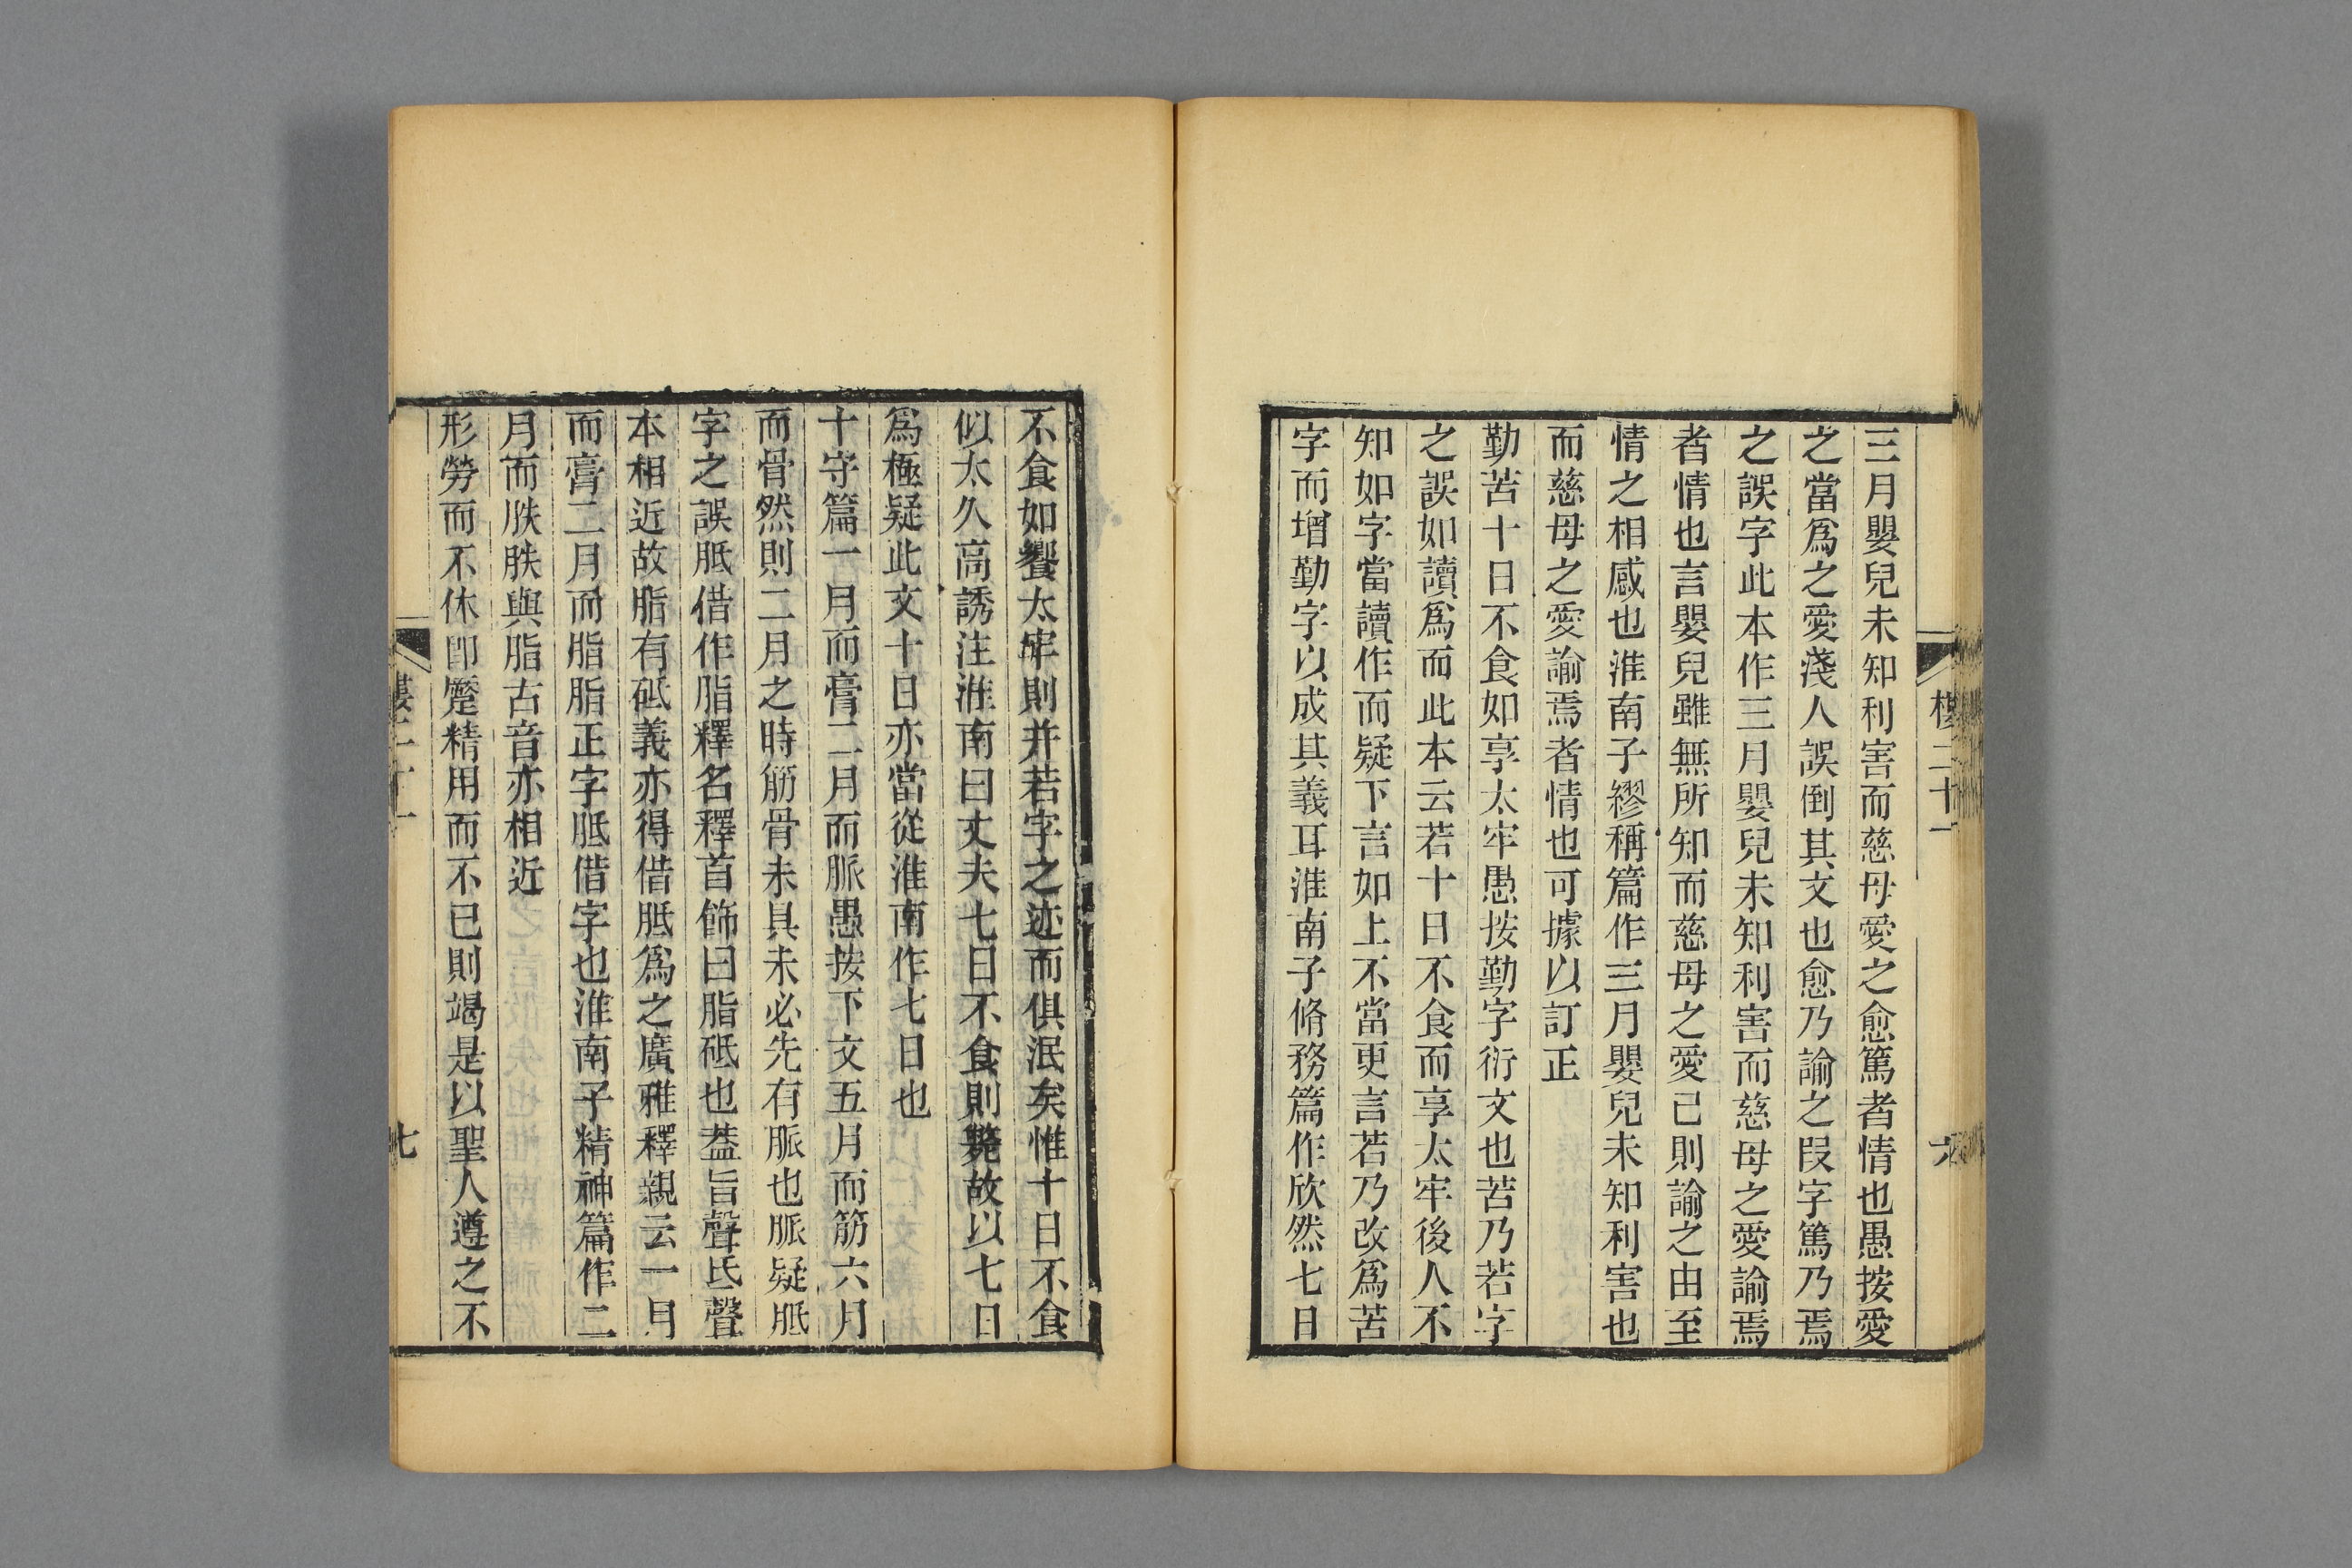 三月嬰兒未知利害而慈母愛之愈篤者情也愚按愛
之當爲之愛淺人誤倒其文也愈乃諭之叚字篤乃焉
之誤字此本作三月嬰兒未知利害而慈母之愛諭焉
者情也言嬰兒雖無所知而慈母之愛已則諭之由至
情之相感也淮南子繆稱篇作三月嬰兒未知利害也
而慈母之愛諭焉者情也可據以訂正
勤苦十日不食如享太牢愚按勤字衍文也苦乃若字
之誤如讀爲而此本云若十日不食而享太牢後人不
知如字當讀作而疑下言如上不當更言若乃改爲苦
字而增勤字以成其義耳淮南子脩務篇作欣然七日
不食如饗太牢則并若字之迹而俱泯矣惟十日不食
似太久高誘注淮南曰丈夫七日不食則斃故以七日
爲極疑此文十日亦當從淮南作七日也
十守篇一月而膏二月而脈愚按下文五月而筋六月
而骨然則二月之時筋骨未具未必先有脈也脈疑胝
字之誤胝借作脂釋名釋首飾曰脂砥也葢旨聲氐聲
本相近故脂有砥義亦得借胝爲之廣雅釋親云一月
而膏二月而脂脂正字胝借字也淮南子精神篇作二
月而胅胅與脂古音亦相近
形勞而不休卽蹷精用而不已則竭是以聖人遵之不
樓二十一
六
七